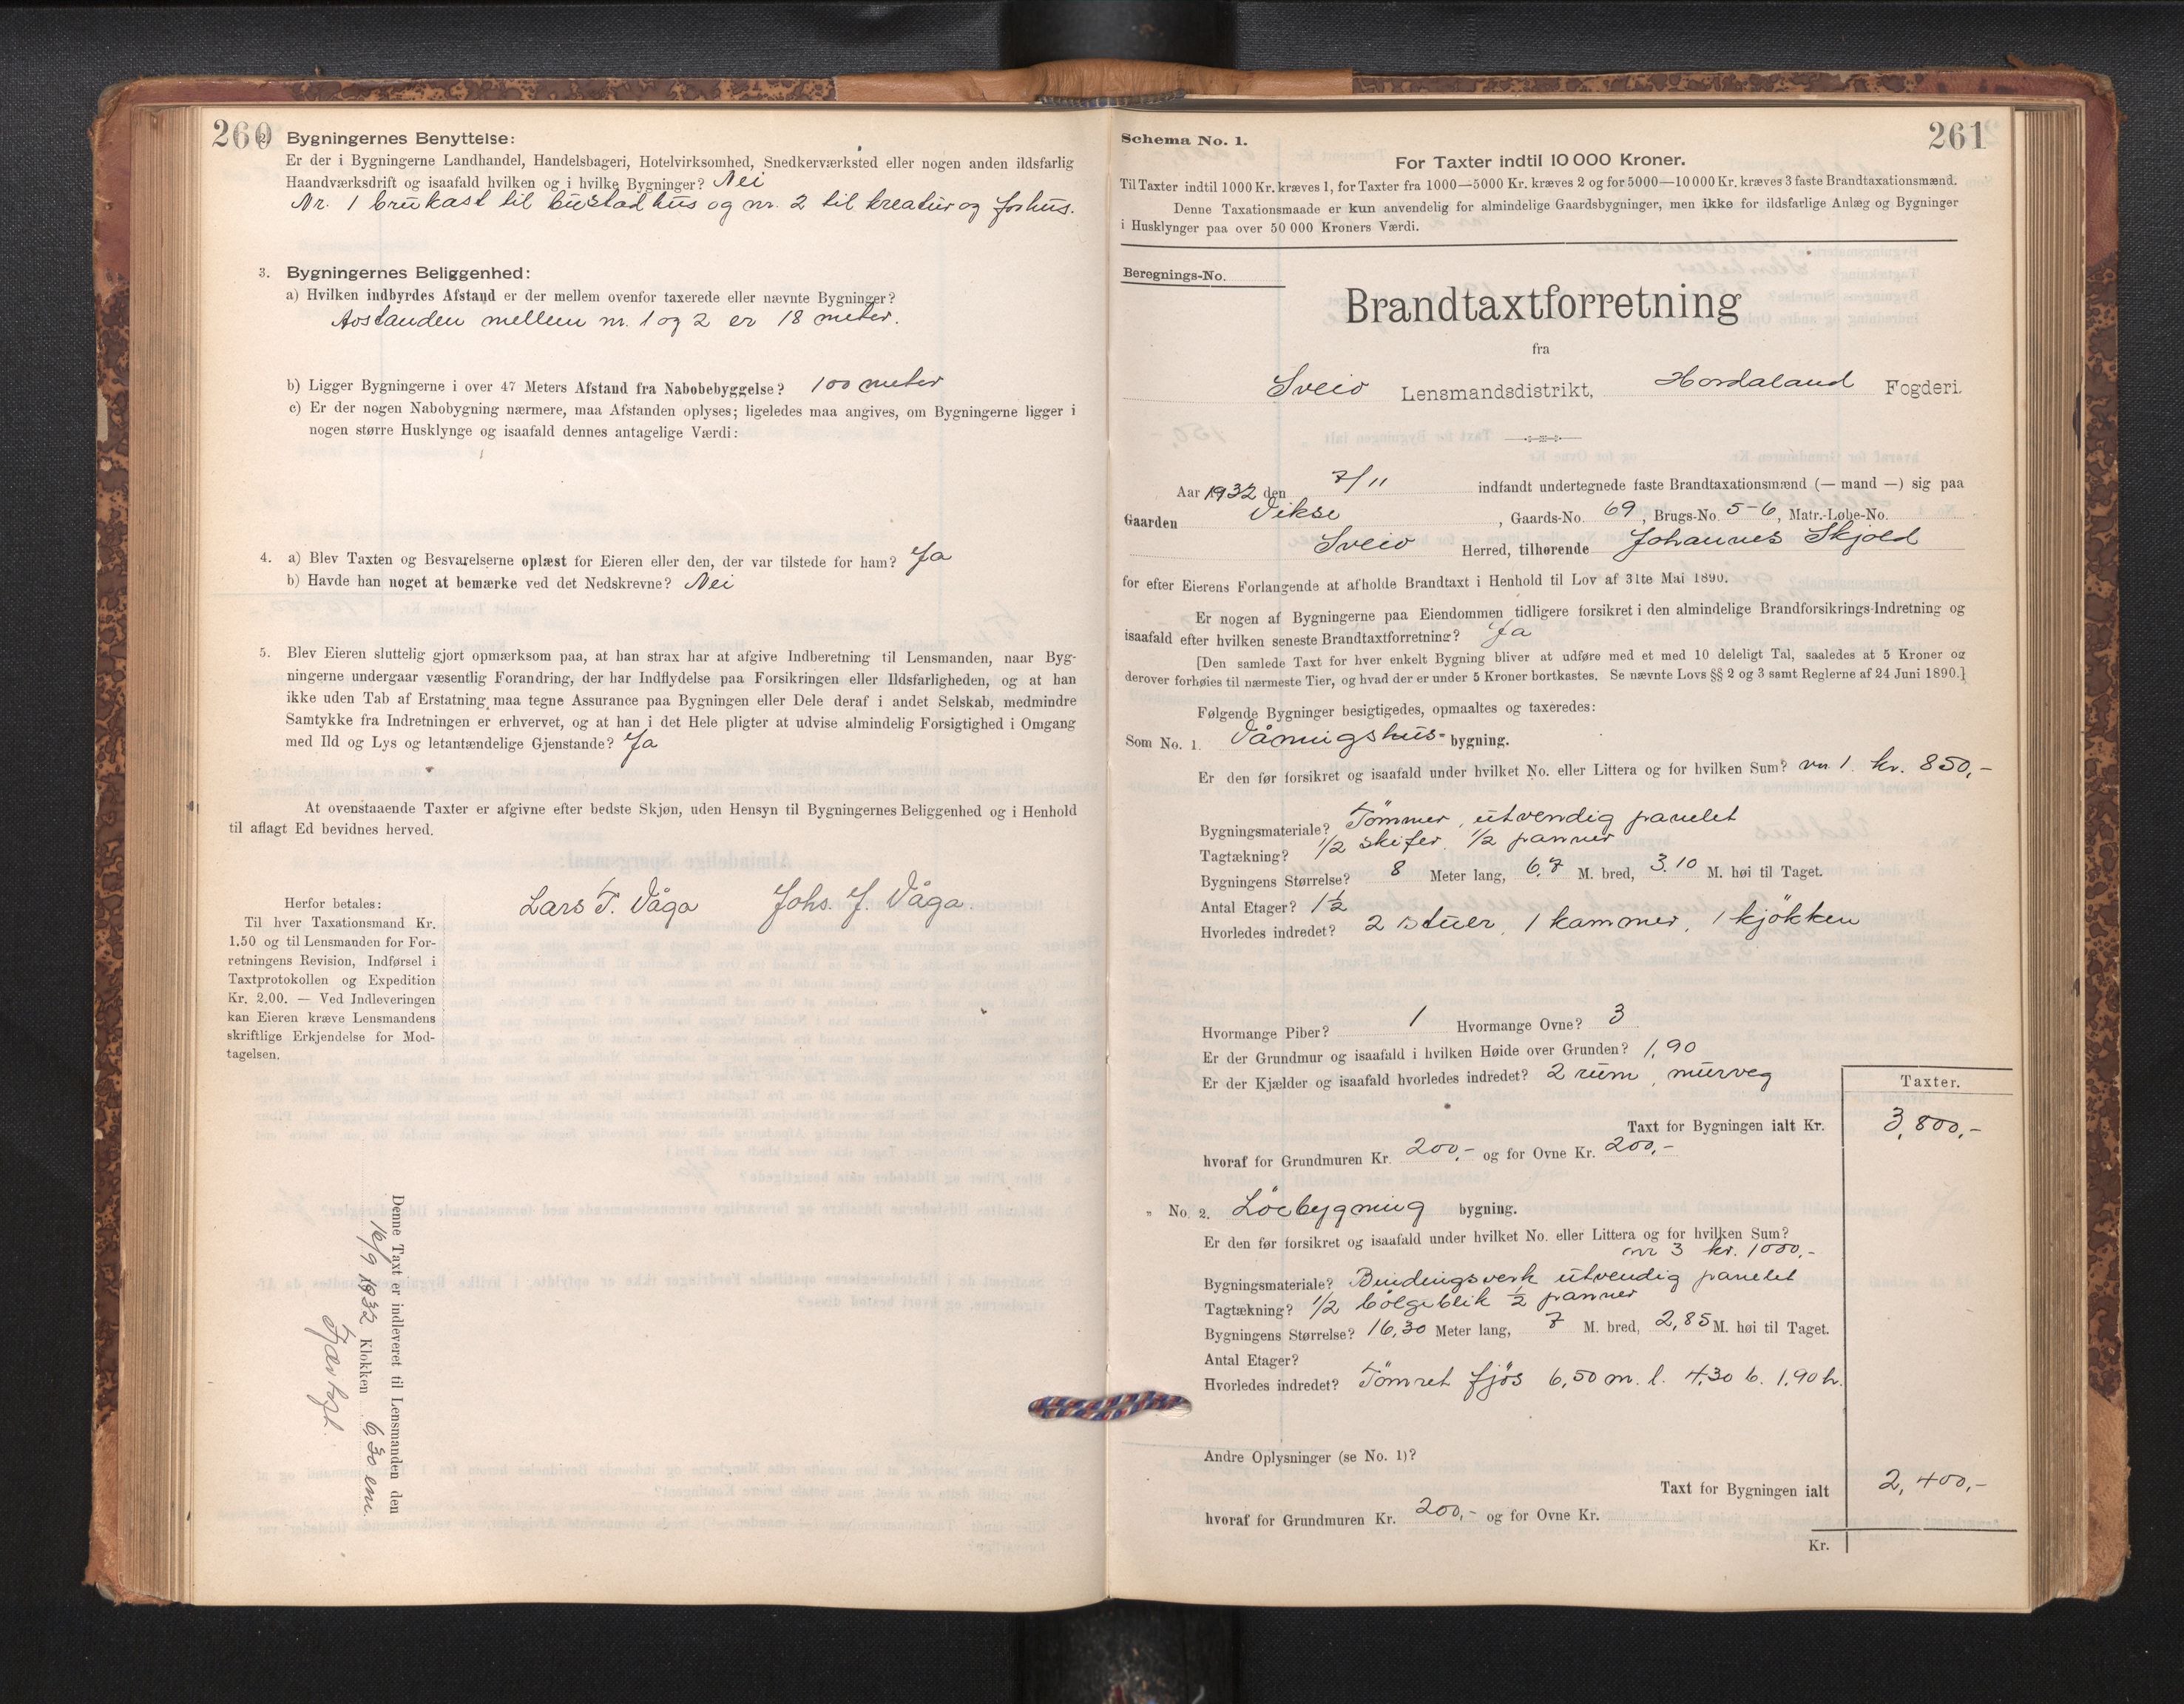 260
2. Bygningernes Benyttelse:
Er der i Bygningerne Landhandel, Handelsbageri, Hotelvirksomhed, Snedkerværksted eller nogen anden ildsfarlig
Haandværksdrift og isaafald hvilken og i hvilke Bygninger? Nei
Nr. 1 brukast til bustadhus og nr. 2 til kreatur og forhus.
3. Bygningernes Beliggenhed:
a) Hvilken indbyrdes Afstand er der mellem ovenfor taxerede eller nævnte Bygninger?
Avstanden mellem nr. 1 og 2 er 18 meter.
b) Ligger Bygningerne i over 47 Meters Afstand fra Nabobebyggelse? 100 meter
c) Er der nogen Nabobygning nærmere, maa Afstanden oplyses; ligeledes maa angives, om Bygningerne ligger i
nogen større Husklynge og isaafald dennes antagelige Værdi:
4. a) Blev Taxten og Besvarelserne oplæst for Eieren eller den, der var tilstede for ham? Ja
b) Havde han noget at bemærke ved det Nedskrevne? Nei
5. Blev Eieren sluttelig gjort opmærksom paa, at han strax har at afgive Indberetning til Lensmanden, naar Byg-
ningerne undergaar væsentlig Forandring, der har Indflydelse paa Forsikringen eller Ildsfarligheden, og at han
ikke uden Tab af Erstatning maa tegne Assurance paa Bygningen eller Dele deraf i andet Selskab, medmindre
Samtykke fra Indretningen er erhvervet, og at han i det Hele pligter at udvise almindelig Forsigtighed i Omgang
med Ild og Lys og letantændelige Gjenstande? Ja
At ovenstaaende Taxter er afgivne efter bedste Skjøn, uden Hensyn til Bygningernes Beliggenhed og i Henhold
til aflagt Ed bevidnes herved.
Lars T. Våga Johs. J. Våga
Herfor betales:
Til hver Taxationsmand Kr.
1,50 og til Lensmanden for For-
retningens Revision, Indførsel i
Taxtprotokollen og Expedition
Kr. 2,00. — Ved Indleveringen
kan Eieren kræve Lensmandens
skriftlige Erkjendelse for Mod-
tagelsen.
Denne Taxt er indleveret til Lensmanden den
16/9 1932 Klokken 6 30 em.
261
Schema No. 1.
For Taxter indtil 10 000 Kroner.
Til Taxter indtil 1000 Kr. kræves 1, for Taxter fra 1000—5000 Kr. kræves 2 og for 5000—10 000 Kr. kræves 3 faste Brandtaxationsmænd.
Denne Taxationsmaade er kun anvendelig for almindelige Gaardsbygninger, men ikke for ildsfarlige Anlæg og Bygninger
i Husklynger paa over 50 000 Kroners Værdi.
Beregnings-No.
Brandtaxtforretning
fra
Sveio Lensmandsdistrikt, Hordaland Fogderi.
Aar 1932 den 7/11 indfandt undertegnede faste Brandtaxationsmænd (— mand —) sig paa
Gaarden Vikse, Gaards-No. 69, Brugs-No. 5-6, Matr.-Løbe-No.
Sveio Herred, tilhørende Johannes Skjold
for efter Eierens Forlangende at afholde Brandtaxt i Henhold til Lov af 31te Mai 1890.
Er nogen af Bygningerne paa Eiendommen tidligere forsikret i den almindelige Brandforsikrings-Indretning og
isaafald efter hvilken seneste Brandtaxtforretning? Ja
[Den samlede Taxt for hver enkelt Bygning bliver at udføre med et med 10 deleligt Tal, saaledes at 5 Kroner og
derover forhøies til nærmeste Tier, og hvad der er under 5 Kroner bortkastes. Se nævnte Lovs §§ 2 og 3 samt Reglerne af 24 Juni 1890.]
Følgende Bygninger besigtigedes, opmaaltes og taxeredes:
Som No. 1. Våningshus- bygning.
Er den før forsikret og isaafald under hvilket No. eller Littera og for hvilken Sum? nr. 1. kr. 850,-
Bygningsmateriale? Tömmer, utvendig panelet
Tagtækning? 1/2 skifer, 1/2 panner
Bygningens Størrelse? 8 Meter lang, 6,7 M. bred, 3.10 M. høi til Taget.
Antal Etager? 1½
Hvorledes indredet? 2 stuer, 1 kammer, 1 kjökken
Hvormange Piber? 1 Hvormange Ovne? 3
Er der Grundmur og isaafald i hvilken Høide over Grunden? 1,90
Er der Kjælder og isaafald hvorledes indredet? 2 rum, murveg
Taxter.
Taxt for Bygningen ialt Kr. 3,800,-
hvoraf for Grundmuren Kr. 200,- og for Ovne Kr. 200,-
„ No. 2. Löebygning bygning.
Er den før forsikret og isaafald under hvilket No. eller Littera og for hvilken Sum?
nr 3 kr. 1000,-
Bygningsmateriale? Bindingsverk utvendig panelet
Tagtækning? 1/2 bölgeblik ½ panner
Bygningens Størrelse? 16,30 Meter lang, 7 M. bred, 2,85 M. høi til Taget.
Antal Etager?
Hvorledes indredet? Tömret fjös 6,50 m. l. 4,30 b. 1,90 h.
Andre Oplysninger (se No. 1)?
Taxt for Bygningen ialt 2,400,-
hvoraf for Grundmuren Kr. 200,- og for Ovne Kr.
Kr.